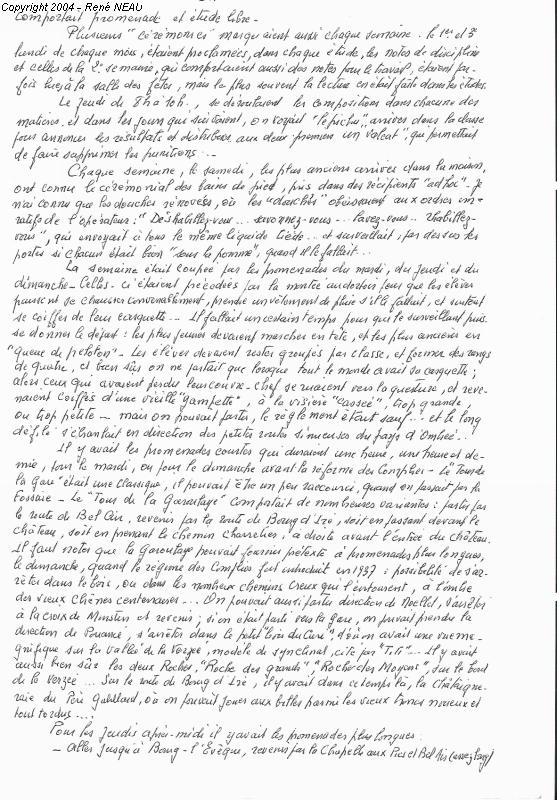 Copyright 2004 - René NEAU
comportait promenade et étude libre -
Plusieurs "cérémonies" marquaient aussi chaque semaine : le 1er et 3e
lundi de chaque mois, étaient proclamées, dans chaque étude, les notes de discipline
et celles de la 2e semaine, qui comportaient aussi des notes pour le travail, étaient par-
fois lues à la salle des fêtes, mais le plus souvent la lecture en était faite dans les études.
Le jeudi de 8h à 10h., se déroulaient les compositions dans chacune des
matières et dans les jours qui suivaient, on voyait "le préfet" arriver dans la classe
pour annoncer les résultats et distribuer aux deux premiers un "valeat", qui permettait
de faire supprimer les punitions...
Chaque semaine, le samedi, les plus anciens arrivés dans la maison,
ont connu le cérémonial des bains de pied, pris dans des récipients "ad hoc" - Je
n'ai connu que les douches rénovées, où les "douchés" obéissaient aux ordres impé-
ratifs de l'opérateur : "Déshabillez-vous... savonnez-vous... lavez-vous... rhabillez-
vous", qui envoyait à tous le même liquide tiède... et surveillait, par dessus les
portes si chacun était bien "sous la pomme", quand il le fallait...
La semaine était coupée par les promenades du mardi, du jeudi et du
dimanche - Celles-ci étaient précédées par la montée au dortoir pour que les élèves
puissent se chausser convenablement, prendre un vêtement de pluie s'il le fallait, et surtout
se coiffer de leur casquette... Il fallait un certain temps pour que le surveillant puis-
se donner le départ : les plus jeunes devaient marcher en tête, et les plus anciens en
"queue de peloton" - Les élèves devaient rester groupés par classe, et former des rangs
de quatre, et bien sûr on ne partait que lorsque tout le monde avait sa casquette ;
alors ceux qui avaient perdu leur couvre-chef se ruaient vers la questure, et reve-
naient coiffés d'une vieille "gampette", à la visière "cassée", trop grande,
ou trop petite - mais on pouvait partir, le règlement était sauf... et le long
défilé s'ébranlait en direction des petites routes sinueuses du pays d'Ombrée...
Il y avait les promenades courtes qui duraient une heure, une heure et de-
mie, tous le mardi, ou pour le dimanche avant la réforme des Complies - Le "Tour de
la gare" était une classique, il pouvait être un peu raccourci, quand on passait par la
Fossaie - Le "Tour de la Garoutage" comptait de nombreuses variantes : partir par
la route de Bel Air, revenir par la route de Bourg d'Iré, soit en passant devant le
château, soit en prenant le chemin charretier, à droite avant l'entrée du château.
Il faut noter que la Garoutage pouvait fournir prétexte à promenades plus longues,
le dimanche, quand le régime des Complies fut introduit en 1937 : possibilité de s'ar-
rêter dans le bois, ou dans les nombreux chemins creux qui l'entourent, à l'ombre
des vieux chênes centenaires... On pouvait aussi partir direction de Noëllet, s'arrêter
à la croix de et revenir ; si on était parti vers la gare, on pouvait prendre la
direction de Pouancé, s'arrêter dans le petit "bois du Curé", d'où on avait une vue ma-
gnifique sur la vallée de la Verzée, modèle de synclinal, cité par "Titi"... Il y avait
aussi bien sûr les deux Roches, "Roche des grands", "Roche des Moyens", sur le bord
de la Verzée... Sur la route de Bourg d'Iré, il y avait dans ce temps là, la Châtaigne-
raie du Père Gaballand, où on pouvait jouer aux billes parmi les vieux troncs noueux et
tout tordus...
Pour les jeudis après-midi il y avait les promenades plus longues :
- aller jusqu'à Bourg-l'Evêque, revenir par la Chapelle aux Pies et Bel Air (assez long)